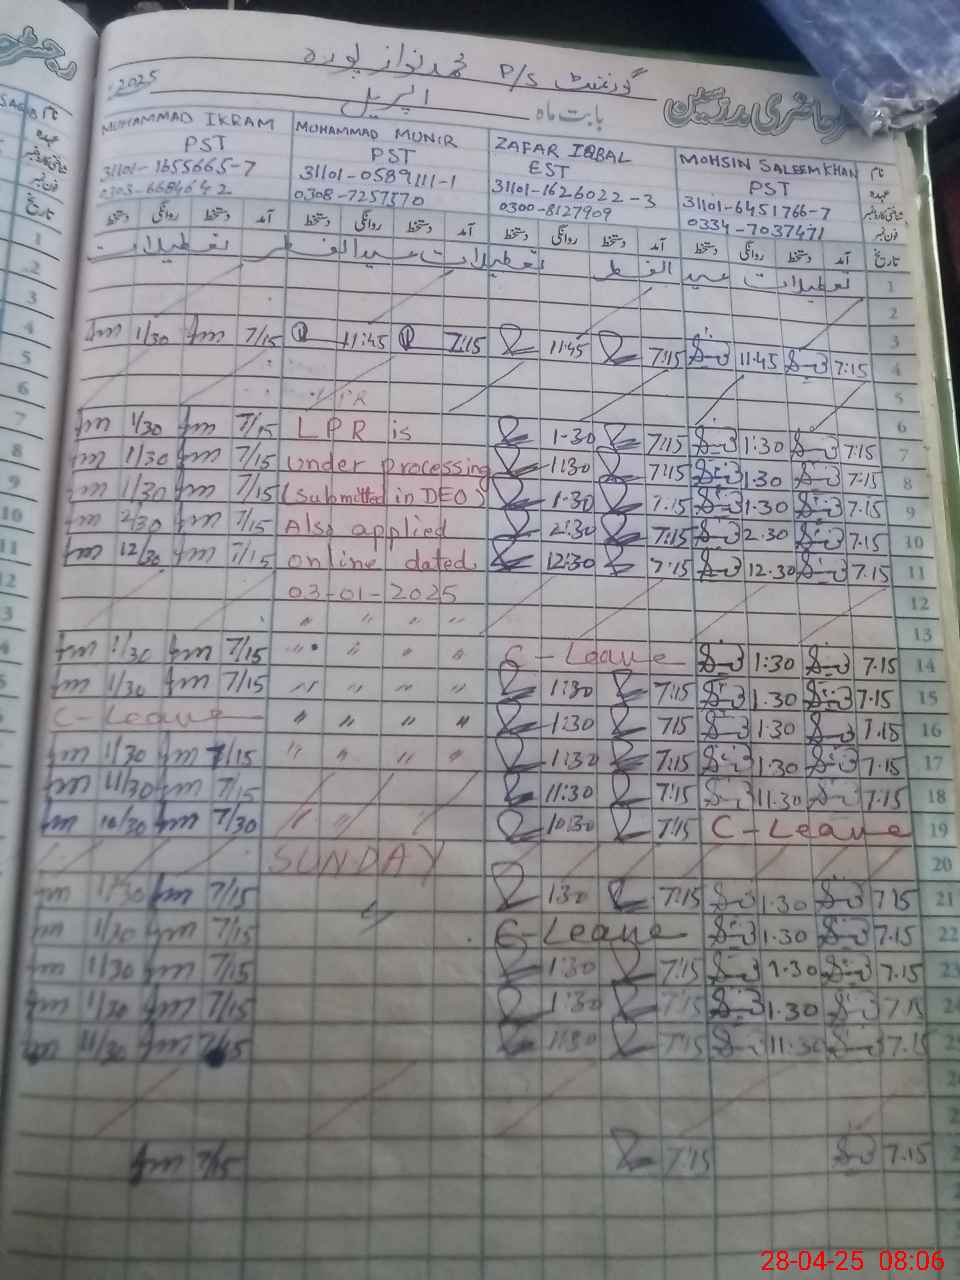 گورنمنٹ P/S محمد نواز پورہ
2025
بابت ماہ اپریل
MUHAMMAD IKRAM MUHAMMAD MUNIR ZAFAR IQBAL MOHSIN SALEEM KHAN نام
PST PST EST PST عہدہ
31101-1655665-7 31101-0589111-1 31101-1626022-3 31101-6451766-7 شناختی کارڈ نمبر
0303-6684642 0308-7257570 0300-8127909 0334-7037471 فون نمبر
دستخط روانگی دستخط آمد دستخط روانگی دستخط آمد دستخط روانگی دستخط آمد دستخط روانگی دستخط آمد تاریخ
تعطیلات عید الفطر تعطیلات عید الفطر تعطیلات 1
2
3
1/30 7/15 11:45 7:15 11:45 7:15 11.45 7:15 4
5
6
1/30 7/15 LPR is 1:30 7:15 1:30 7:15 7
1/30 7/15 under processing 1:30 7:15 1.30 7.15 8
1/30 7/15 (submitted in DEO) 1:30 7:15 1.30 7.15 9
2/30 7/15 Also applied 2:30 7:15 2.30 7.15 10
12/30 7/15 online dated 12:30 7:15 12.30 7.15 11
03-01-2025 12
" " " " 13
1/30 7/15 " " " " C-Leave 1:30 7.15 14
1/30 7/15 " " " " 1:30 7:15 1.30 7.15 15
C-Leave " " " " 1:30 7:15 1:30 7.15 16
1/30 7/15 " " " " 1:30 7:15 1.30 7.15 17
11/30 7/15 11:30 7:15 11.30 7.15 18
10/30 7/30 " " 10:30 7:15 C-Leave 19
SUNDAY 20
1/30 7/15 1:30 7:15 1.30 7.15 21
1/30 7/15 C-Leave 1.30 7.15 22
1/30 7/15 1:30 7:15 1.30 7.15 23
1/30 7/15 1:30 7:15 1.30 7.15 24
11/30 7/15 11:30 7:15 11.30 7.15
7/15 7:15 7.15
28-04-25 08:06